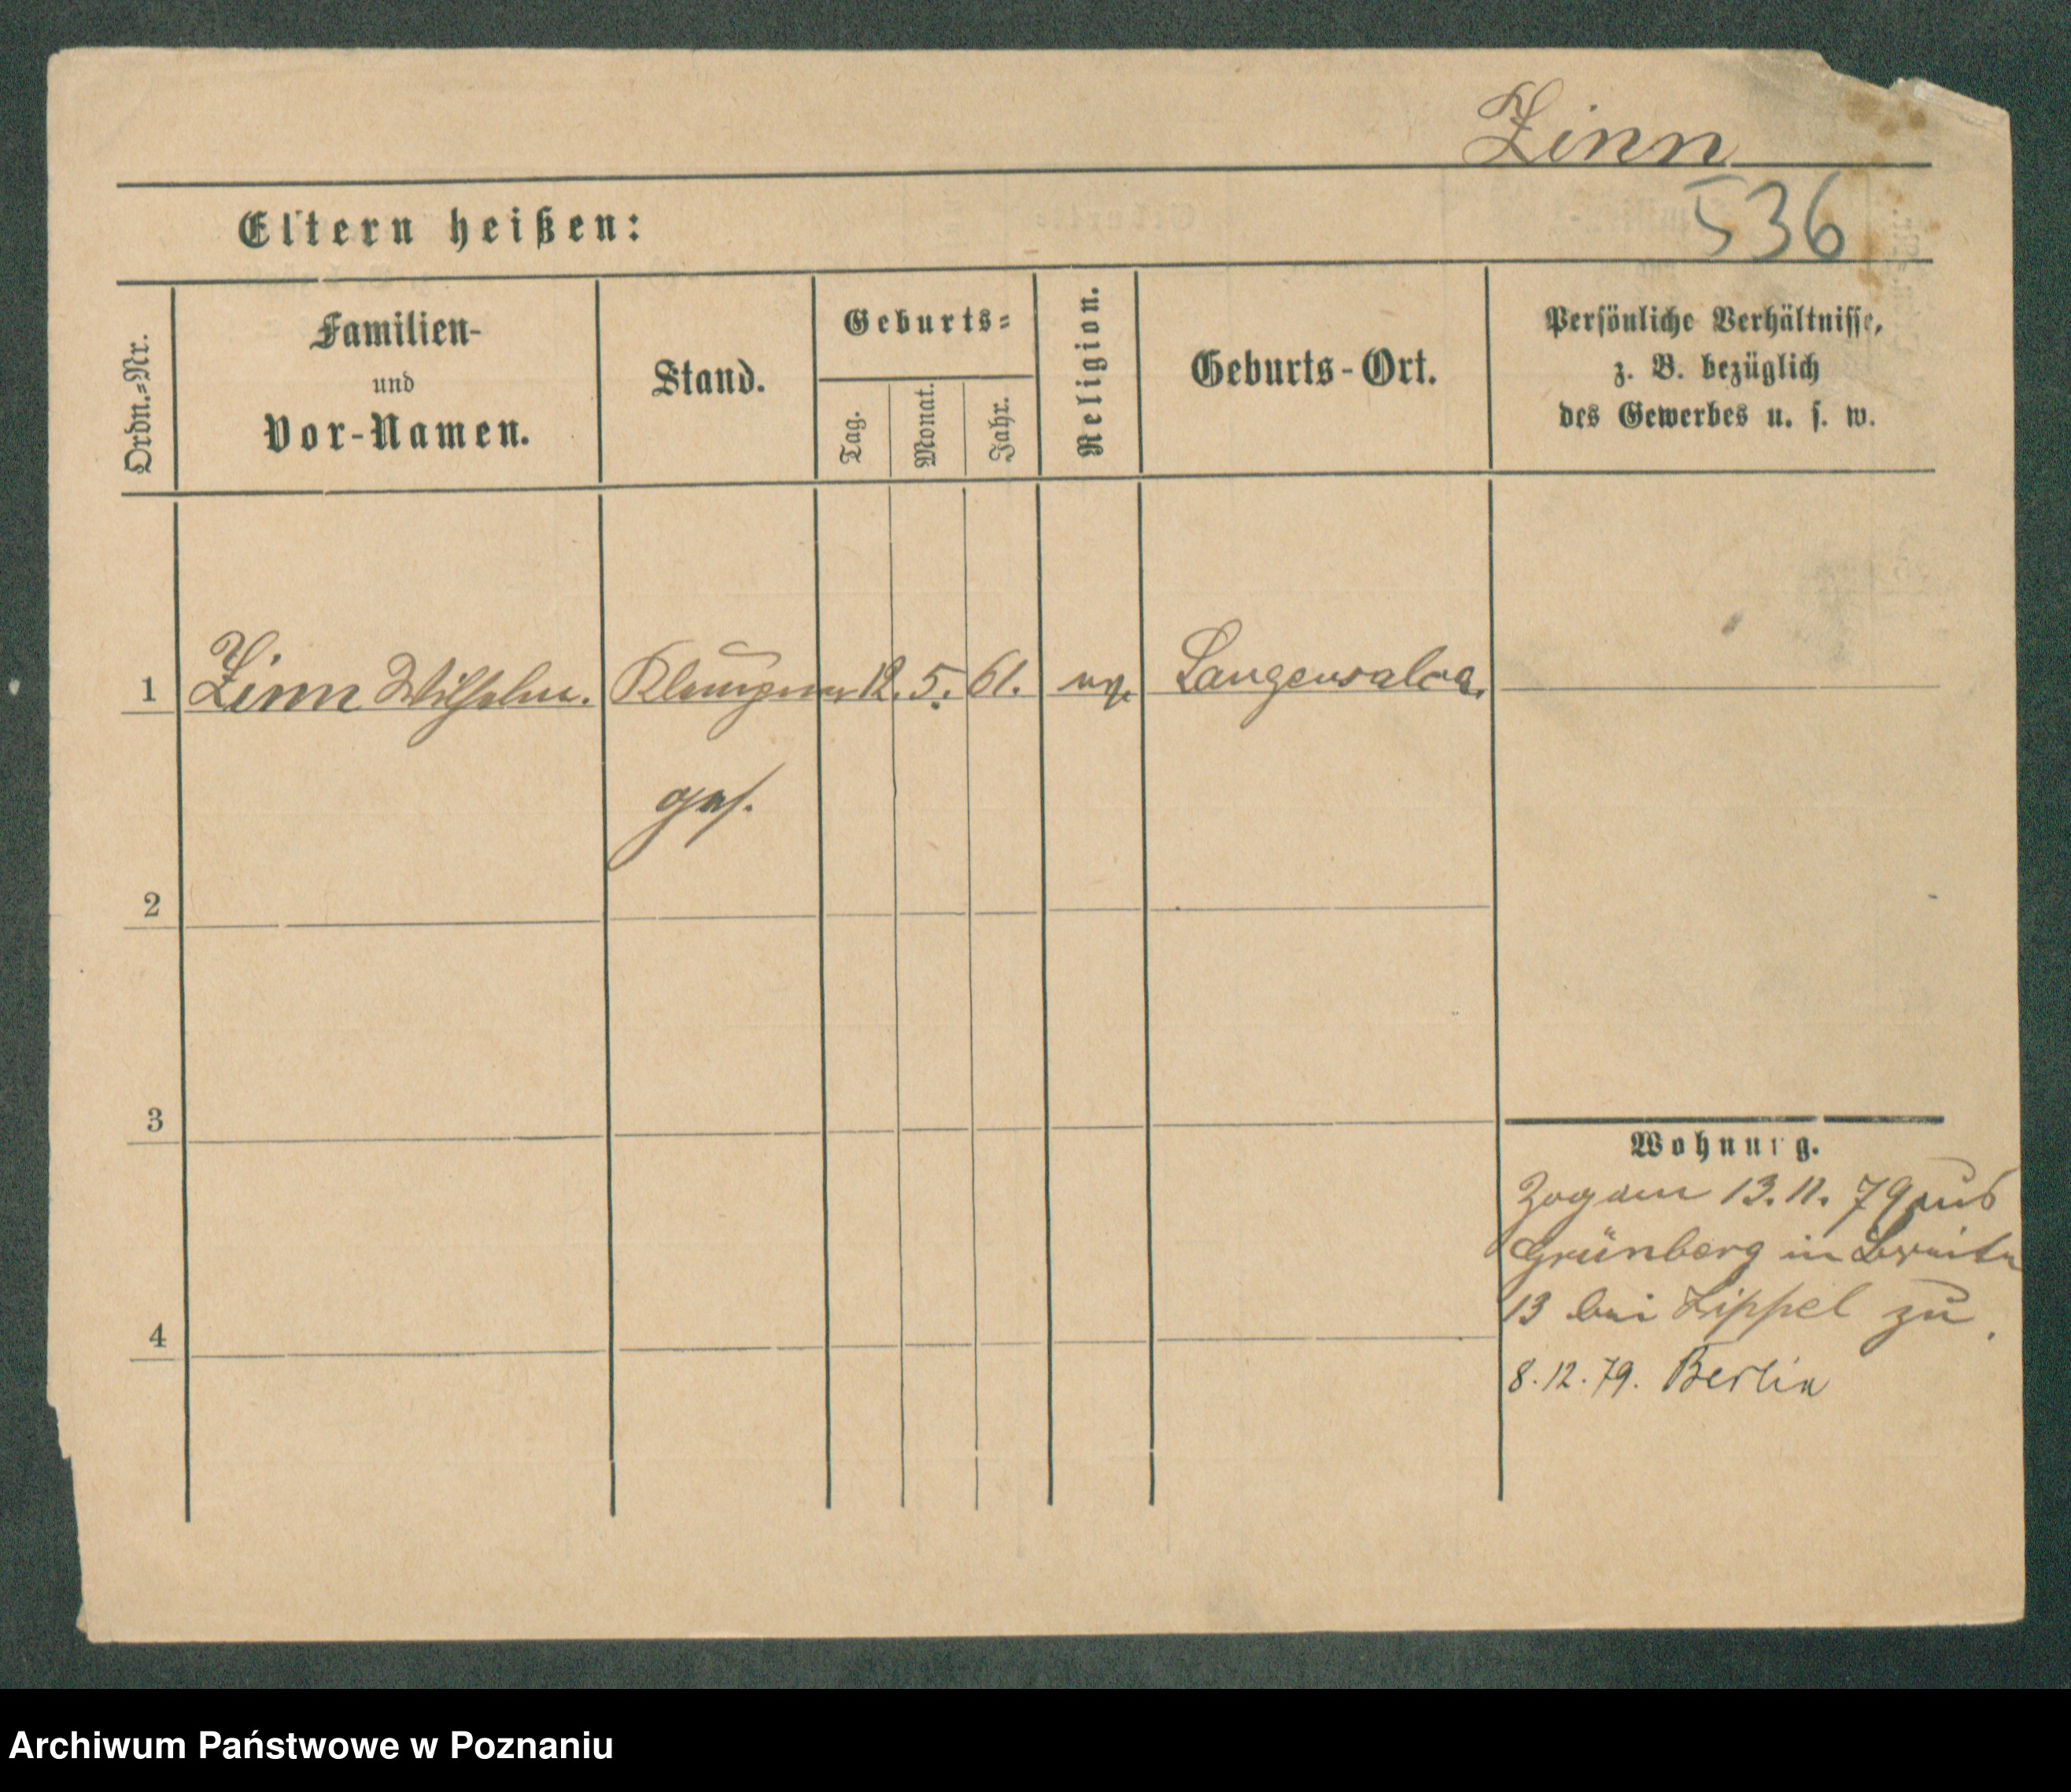 Zinn
536
Eltern heißen:
Ordn.=Nr.
Familien-
und
Vor-Namen.
Stand.
Geburts=
Tag.
Monat.
Jahr.
Religion.
Geburts-Ort.
Persönliche Verhältnisse,
z. B. bezüglich
des Gewerbes u. s. w.
1 Zinn Wilhelm. Klempner 12. 5. 61. Langensalza.
ges.
2
3
4
Wohnung.
Zog am 13. 11. 79 aus
Grünberg in Breite
13 bei Lippel zu.
8. 12. 79. Berlin
Archiwum Państwowe w Poznaniu